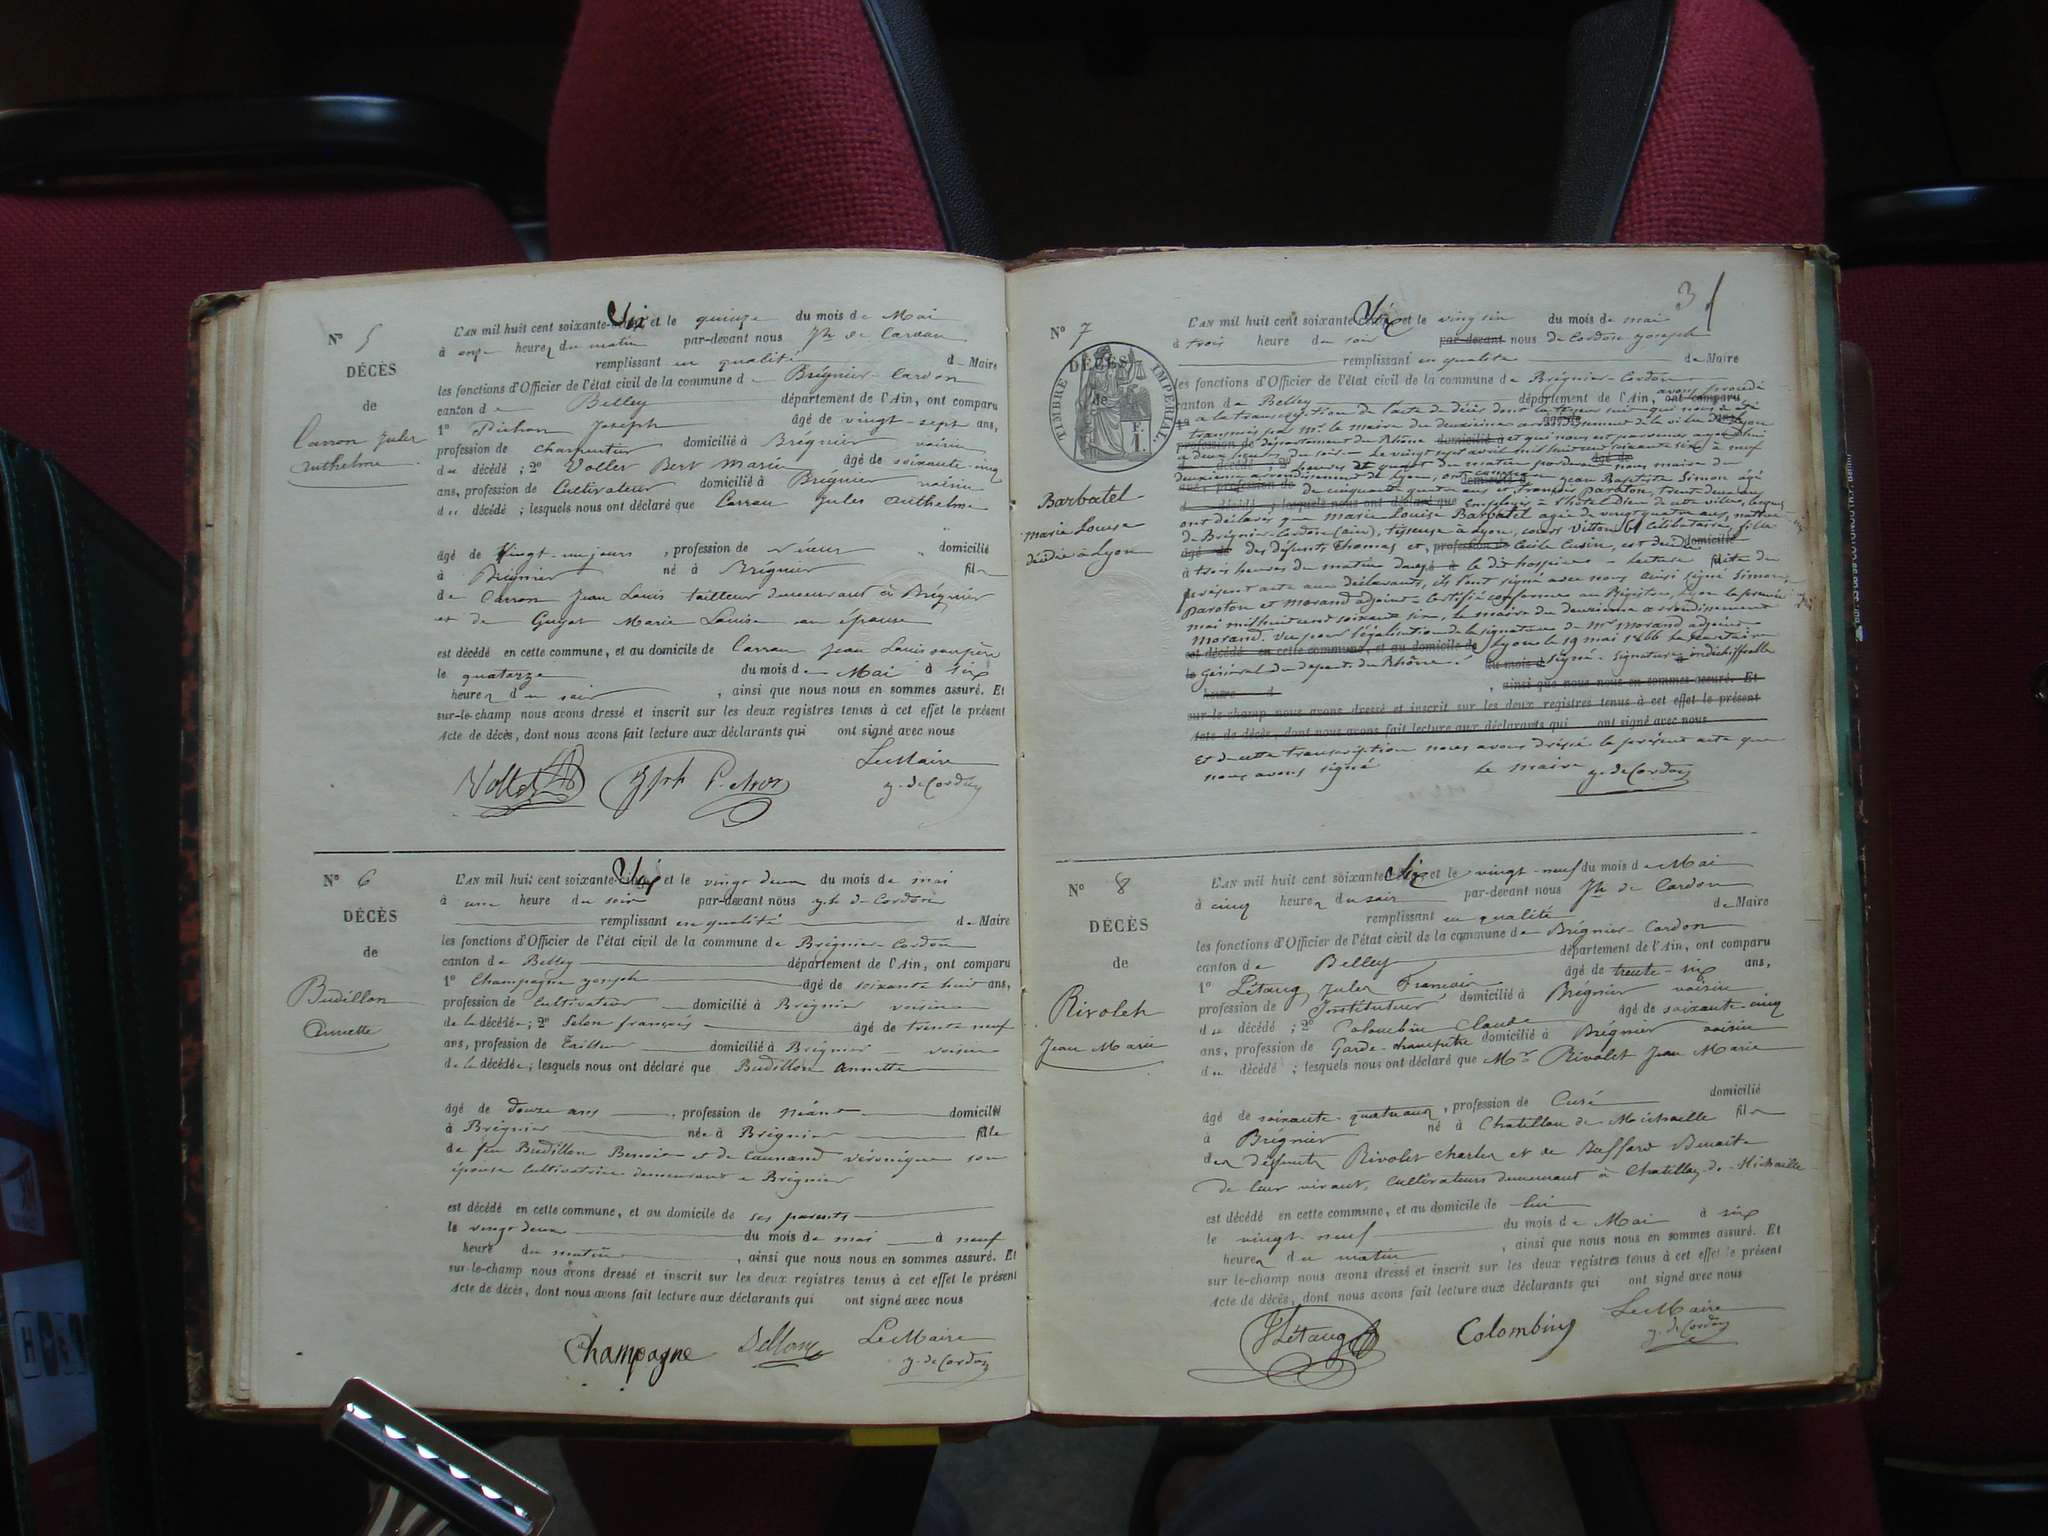 N° 5
DÉCÈS
de
Carron Jules
Anthelme
L'AN mil huit cent soixante-Six et le quinze du mois de Mai
à onze heures du matin par-devant nous Jh de Cardon
remplissant en qualité de Maire
les fonctions d'Officier de l'état civil de la commune de Brégnier-Cardon
canton de Belley département de l'Ain, ont comparu
1° Pichon Joseph âgé de vingt-sept ans,
profession de charpentier domicilié à Brégnier voisin
du décédé ; 2° Vollet Bert Marin âgé de soixante-cinq
ans, profession de Cultivateur domicilié à Brégnier voisin
du décédé ; lesquels nous ont déclaré que Carron Jules Anthelme
âgé de Vingt-un jours , profession de domicilié
à Brégnier né à Brégnier fils
de Carron Jean Louis tailleur demeurant à Brégnier
et de Guyot Marie Louise son épouse
est décédé en cette commune, et au domicile de Carron Jean Louis son père
le quatorze du mois de Mai à six
heures du soir , ainsi que nous nous en sommes assuré. Et
sur-le-champ nous avons dressé et inscrit sur les deux registres tenus à cet effet le présent
Acte de décès, dont nous avons fait lecture aux déclarants qui ont signé avec nous
Le Maire
Vollet Jph Pichon y. de Cordon
N° 6
DÉCÈS
de
Budillon
Annette
L'AN mil huit cent soixante-Six et le vingt deux du mois de mai
à une heure du soir par-devant nous y.h de Cordon
remplissant en qualité de Maire
les fonctions d'Officier de l'état civil de la commune de Brégnier-Cordon
canton de Belley département de l'Ain, ont comparu
1° Champagne joseph âgé de soixante huit ans,
profession de Cultivateur domicilié à Brégnier voisin
de la décédée ; 2° Selon françois âgé de trente neuf
ans, profession de Tailleur domicilié à Brégnier voisin
de la décédée ; lesquels nous ont déclaré que Budillon Annette
âgé de douze ans , profession de néant domicilié
à Brégnier née à Brégnier fille
de feu Budillon Benoit et de Caunand véronique son
épouse Cultivatrice demeurant à Brégnier
est décédé en cette commune, et au domicile de ses parents
le vingt deux du mois de mai à neuf
heure du matin , ainsi que nous nous en sommes assuré. Et
sur-le-champ nous avons dressé et inscrit sur les deux registres tenus à cet effet le présent
Acte de décès, dont nous avons fait lecture aux déclarants qui ont signé avec nous
Champagne Le Maire
y. de Cordon
3
N° 7
DÉCÈS
de
TIMBRE IMPÉRIAL
1 F.
Barbatel
Marie Louise
décédée à Lyon
L'AN mil huit cent soixante-Six et le vingt six du mois de mai
à trois heure du soir par-devant nous de Cordon joseph
remplissant en qualité de Maire
les fonctions d'Officier de l'état civil de la commune de Brégnier-Cordon
canton de Belley département de l'Ain, ont comparu avons procédé
à la transcription de l'acte de décès dont la teneur suit qui nous a été
transmis par Mr le maire du deuxième arrondissement de la ville de Lyon
département du Rhône et qui nous est parvenu aujourd'hui
à deux heures du soir. - Le vingt sept avril mil huit cent soixante six à neuf
heures et quart du matin par devant nous maire du
deuxième arrondissement de Lyon, ont comparu jean Baptiste Simon âgé
de cinquante ans et françois Paroton, trente deux ans
Employés à l'hôtel Dieu de cette ville, lesquels
ont déclaré que Marie Louise Barbatel agée de vingt quatre ans, native
de Brégnier-Cordon (ain), tisseuse à Lyon, cours Vitton 61 Célibataire, fille
des défunts Thomas et Cécile Cusin, est décédée
à trois heures du matin au dit hospice - lecture faite du
présent acte aux déclarants, ils l'ont signé avec nous ainsi signé Simon,
Paroton et Morand adjoint - Certifié conforme au Régistre, Lyon le premier
mai mil huit cent soixante six, le maire du deuxième arrondissement
Morand. Vu pour légalisation de la signature de Mr Morand adjoint
est décédé en cette commune, et au domicile de Lyon le 19 mai 1866 le secrétaire
Général du départ. du Rhône. du mois d signé - signature indéchiffrable
heure d , ainsi que nous nous en sommes assuré. Et
sur-le-champ nous avons dressé et inscrit sur les deux registres tenus à cet effet le présent
Acte de décès, dont nous avons fait lecture aux déclarants qui ont signé avec nous
Et de cette transcription nous avons dressé le présent acte que
nous avons signé Le Maire y. de Cordon
N° 8
DÉCÈS
de
Rivolet
Jean Marie
L'AN mil huit cent soixante-Six et le vingt-neuf du mois de Mai
à cinq heures du soir par-devant nous Jh de Cardon
remplissant en qualité de Maire
les fonctions d'Officier de l'état civil de la commune de Brégnier-Cardon
canton de Belley département de l'Ain, ont comparu
1° Létang Jules François âgé de trente-six ans,
profession de Instituteur domicilié à Brégnier voisin
du décédé ; 2° Colombin Claude âgé de soixante-cinq
ans, profession de Garde-champêtre domicilié à Brégnier voisin
du décédé ; lesquels nous ont déclaré que Mr Rivolet Jean Marie
âgé de soixante-quatre ans , profession de Curé domicilié
à Brégnier né à Chatillon de Michaille fils
des défunts Rivolet Charles et de Buffard Benoite
de leur vivant, Cultivateurs demeurant à Chatillon-de-Michaille
est décédé en cette commune, et au domicile de lui
le vingt-neuf du mois de Mai à six
heures du matin , ainsi que nous nous en sommes assuré. Et
sur-le-champ nous avons dressé et inscrit sur les deux registres tenus à cet effet le présent
Acte de décès, dont nous avons fait lecture aux déclarants qui ont signé avec nous
Le Maire
J Létang Colombin y. de Cordon